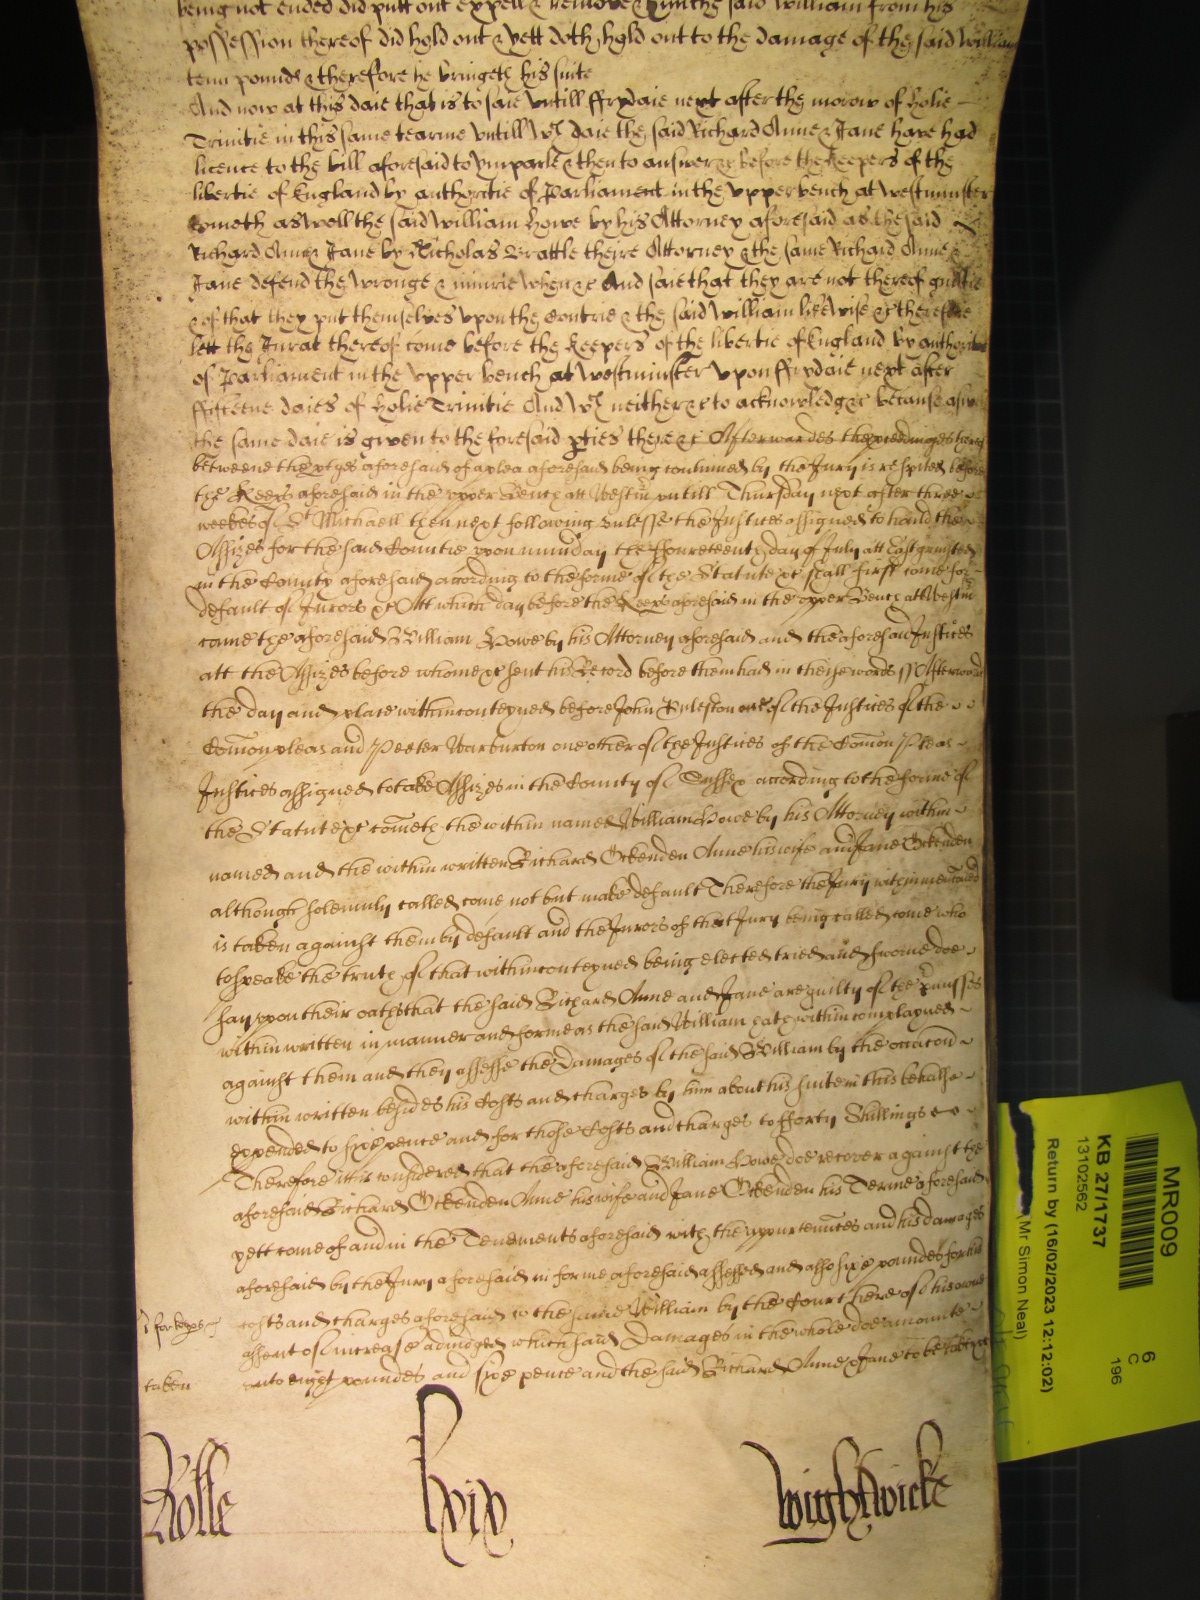 being not ended did putt out expell & remove & him the said William from his
possession thereof did hold out & yett doth hold out to the damage of the said William
tenn pounds & therefore he bringeth his suite
And now at this daie that is to saie untill ffrydaie next after the morow of holie
Trinitie in this same tearme untill wch daie the said Richard Anne & Jane have had
licence to the bill aforesaid to imparle & then to answer &c before the Keepers of the
libertie of England by authoritie of Parliament in the upper bench at Westminster
cometh aswell the said William Howe by his Attorney aforesaid as the said
Richard Anne & Jane by Nicholas Brattle theire Attorney & the same Richard Anne &
Jane defend the wronge & iniurie when &c And saie that they are not thereof guiltie
& of that they put themselves upon the Contrie & the said William likewise &c therefore
lett the Jurat thereof come before the Keepers of the libertie of England by authoritie
of Parliament in the upper bench at Westminster upon ffrydaie next after
fifteene daies of holie Trinitie And wch neither &c to acknowledg &c because aswell
the same daie is given to the foresaid pties there &c Afterwardes the pceedinges thereof
betweene the ptyes aforesaid of a plea aforesaid being continued by the Jury is respited before
the Keeps aforesaid in the upper Bench att Westmr untill Thursday next after three
weekes of St Michaell then next following unlesse the Justices assigned to hould the
Assizes for the said Countie upon munday the ffoureteenth day of July att Eastgrinsted
in the County aforesaid according to the forme of the Statute &c shall first come for
default of Jurors &c Att which day before the Keeps aforesaid in the upper Bench att Westmr
come the aforesaid William Howe by his Attorney aforesaid and the aforesaid Justices
att the Assizes before whome &c sent his Record before them had in theise words ss Afterwards
the day and place within conteyned before John Puleston one of the Justices of the
Comon pleas and Peeter Warburton one other of the Justices of the Comon Pleas
Justices assigned to take Assizes in the County of Sussex according to the forme of
the Statute &c cometh the within named William Howe by his Attorney within
named and the within written Richard Ockenden Anne his wife and Jane Ockenden
although solemnly called come not but make default Therefore the Jury within menconed
is taken against them by default and the Jurors of that Jury being called come who
to speake the truth of that within conteyned being elected tried and sworne doe
say upon their oaths that the said Richard Anne and Jane are guilty of the pmisses
within written in manner and forme as the said William hath within complayned
against them and they assesse the Damages of the said William by the occacon
within written besides his Costs and charges by him about his suite in this behalfe
expended to sixe pence and for those Costs and charges to fforty Shillings
Therefore itt is considered that the aforesaid William Howe doe recover against the
aforesaid Richard Ockenden Anne his wife and Jane Ockenden his Terme aforesaid
yett come of and in the Tenements aforesaid with the appurtenncs and his damages
aforesaid by the Jury aforesaid in forme aforesaid assessed and also sixe poundes for his
costs and charges aforesaid to the same William by the Court here of his owne
assent of increase adiudged which said Damages in the whole doe amounte
unto eight poundes and sixe pence and the said Richard Anne & Jane to be taken &c
taken
Rolle
Wightwicke
MR009
6
C
196
KB 27/1737
13102562
Return by (16/02/2023 12:12:02)
(Mr Simon Neal)